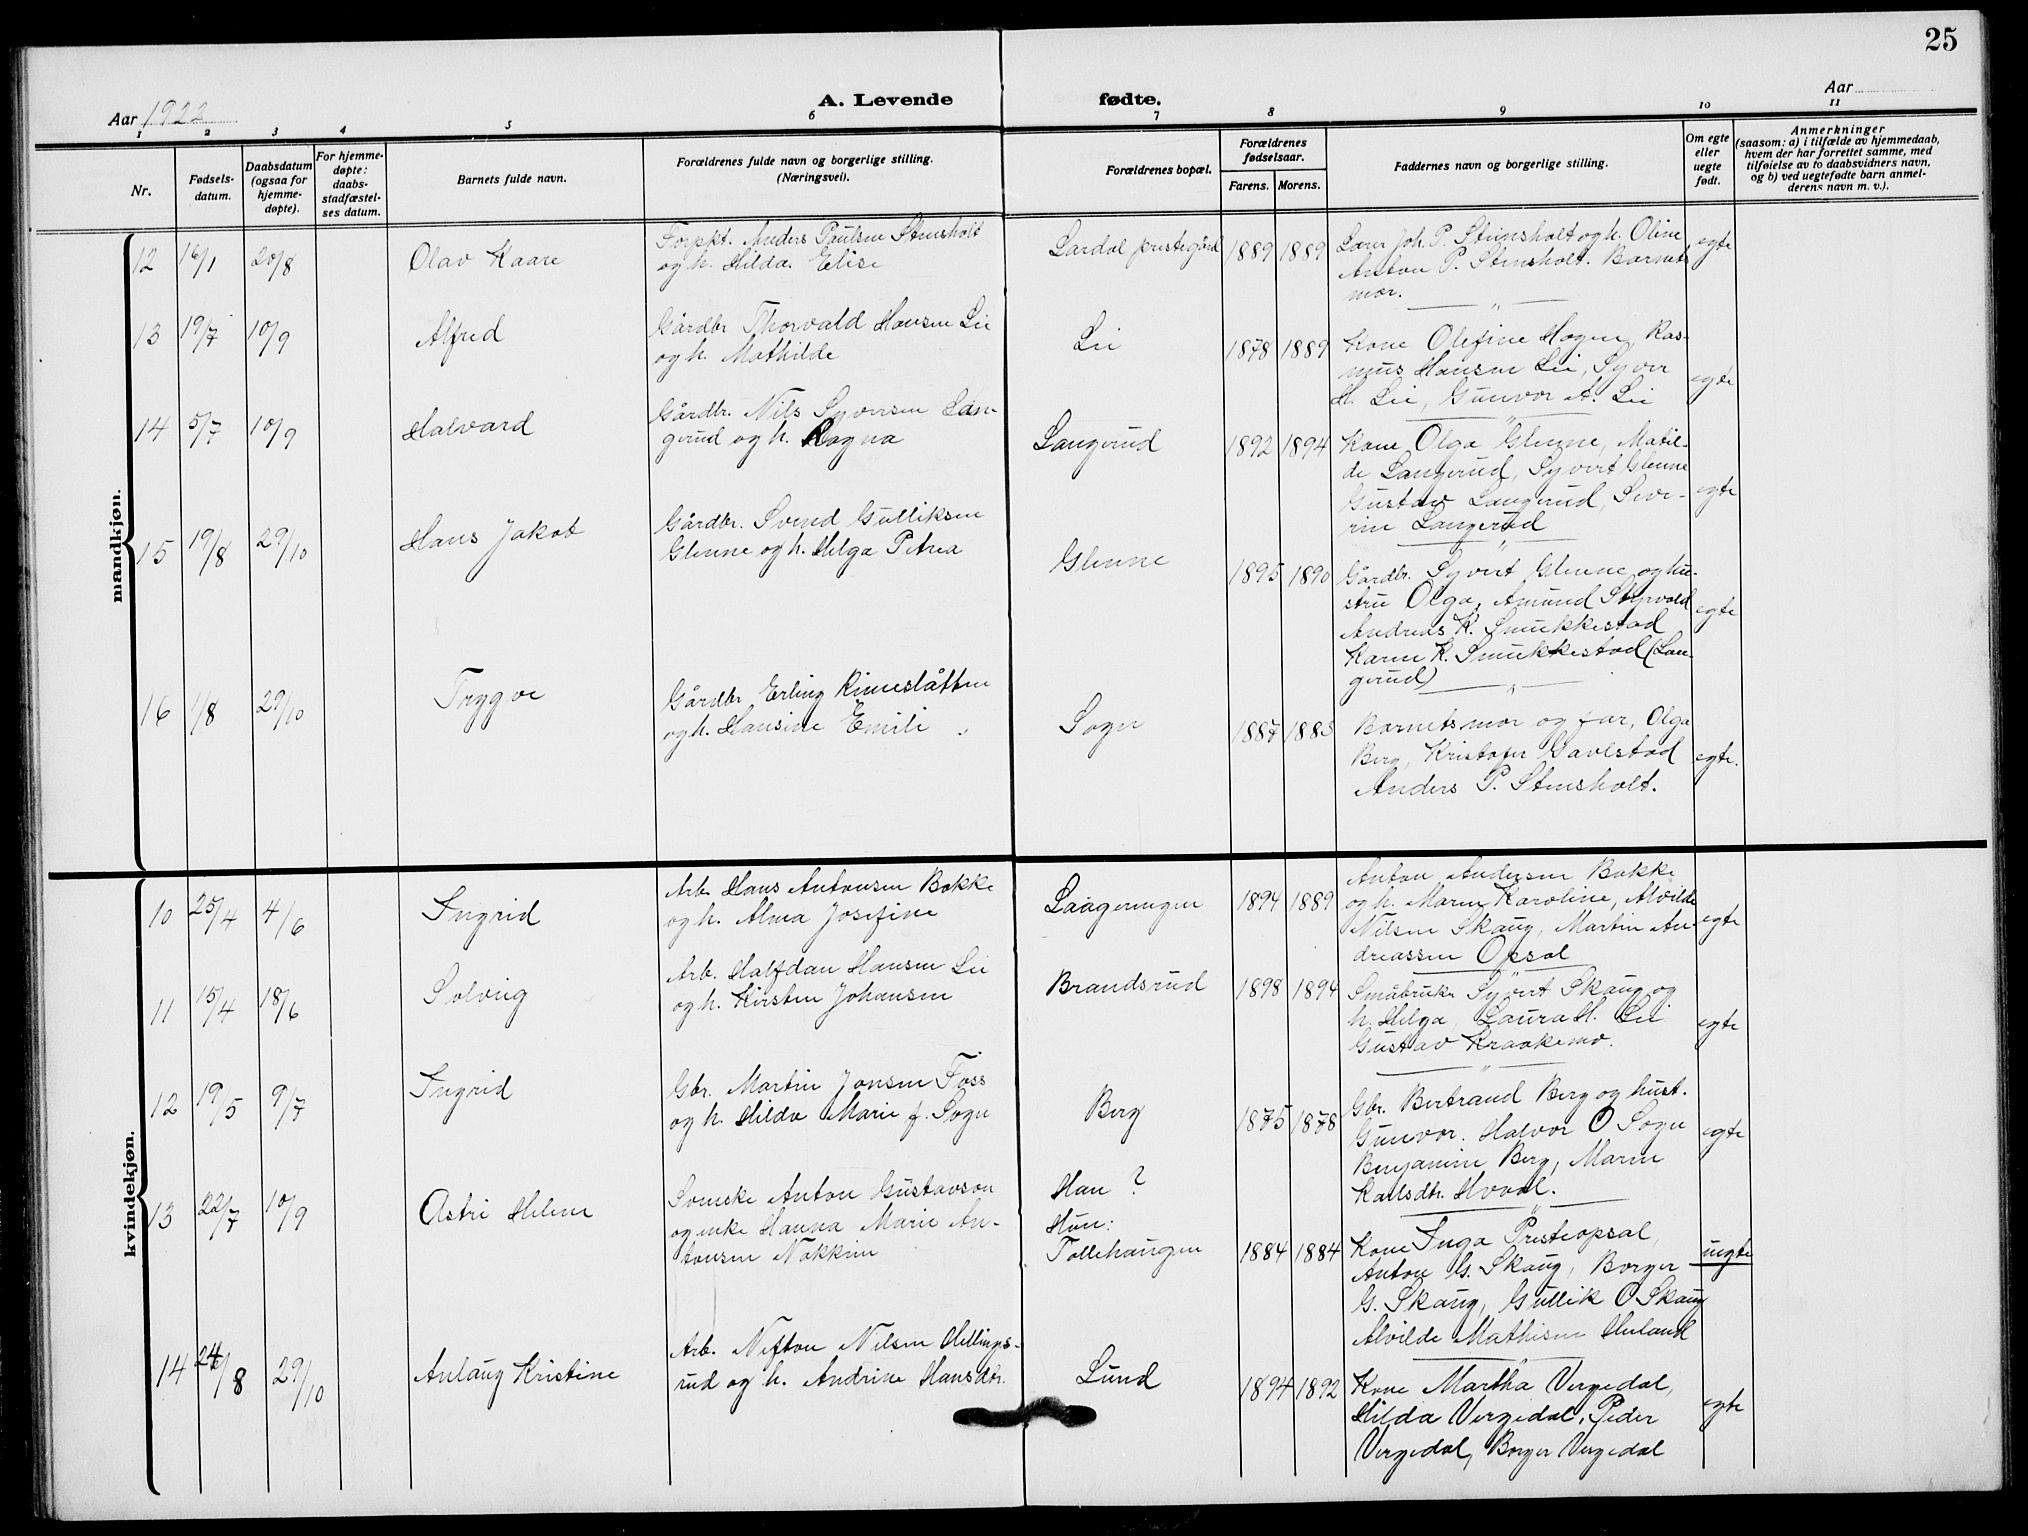 25
A. Levende fødte.
Aar 1922
Aar
1 2 3 4 5 6 7 8 9 10 11
Nr.
Fødsels-
datum.
Daabsdatum
(ogsaa for
hjemme-
døpte).
For hjemme-
døpte:
daabs-
stadfæstel-
ses datum.
Barnets fulde navn.
Forældrenes fulde navn og borgerlige stilling.
(Næringsvei).
Forældrenes bopæl.
Forældrenes
fødselsaar.
Farens. Morens.
Faddernes navn og borgerlige stilling.
Om egte
eller
uegte
født.
Anmerkninger
(saasom: a) i tilfælde av hjemmedaab,
hvem der har forrettet samme, med
tilføielse av to daabsvidners navn,
og b) ved uegtefødte barn anmel-
derens navn m. v.).
mandkjøn.
12 16/1 20/8 Olav Kaare
Forpkt. Anders Paulsen Stensholt
og h. Hilda Elise
Lardal prestegård 1889 1889
Lærer Joh. P. Stensholt og h. Oline,
Anton P. Stensholt. Barnets
mor.
egte
13 19/7 10/9 Alfred
Gårdbr Thorvald Hansen Lie
og h. Mathilde
Lie 1878 1889
Kone Olefine Hagen, Ras-
mus Hansen Lie, Syver
H. Lie, Gunvor A. Lie
egte
14 5/7 10/9 Halvard
Gårdbr. Nils Syversen Lan-
gerud og h. Ragna
Langerud 1892 1894
Kone Olga Glenne, Matil-
de Langerud, Syvert Glenne
Gustav Langerud, Seve-
rin Langerud
egte
15 19/8 29/10 Hans Jakob
Gårdbr. Svend Gulliksen
Glenne og h. Helga Petrea
Glenne 1895 1890
Gårdbr. Syvert Glenne og hu-
stru Olga, Amund Styrvold
Andreas K. Smukkestad
Karen K. Smukkestad (Lan-
gerud)
egte
16 1/8 29/10 Trygve
Gårdbr Erling Rimeslåtten
og h. Hansine Emili
Sogn 1887 1885
Barnets mor og far, Olga
Berg, Kristofer Gavelstad
Anders P. Stensholt.
egte.
kvindekjøn.
10 25/4 4/6 Ingrid
Arb. Hans Antonsen Bakke
og h. Alma Josefine
Laageringen 1894 1889
Anton Andersen Bakke
og h. Maren Karoline, Alvilde
Nilsen Skaug, Martin An-
dreassen Opsal
egte
11 15/4 18/6 Solveig
Arb. Halfdan Hansen Lie
og h. Kirsten Johansen
Brandsrud 1898 1894
Småbruker Syvert Skaug og
h. Helga, Laura H. Lie
Gustav Kraakemo.
egte
12 19/5 9/7 Ingrid
Gbr. Martin Jonsen Foss
og h. Hilda Marie f. Sogn
Berg 1875 1878
Gbr. Bertrand Berg og hust.
Gunvor. Halvor O Sogn
Benjamin Berg, Maren
Karlsdtr. Hvaal.
egte
13 22/7 10/9 Astri Helene
Svenske Anton Gustavson
og enke Hanna Marie An-
tonsen Nakkim
Han ?
Hun:
Tollehaugen 1884 1884
Kone Inga Presteopsal,
Anton G. Skaug, Borger
G. Skaug, Gullik O Skaug
Alvilde Mathisen Huland
uegte
14 24/8 29/10 Anlaug Kristine
Arb. Nefton Nilsen Hellings-
rud og h. Andrine Hansdtr.
Lund 1894 1892
Kone Martha Vergedal,
Hilda Vergedal, Peder
Vergedal, Borger Vergedal
egte